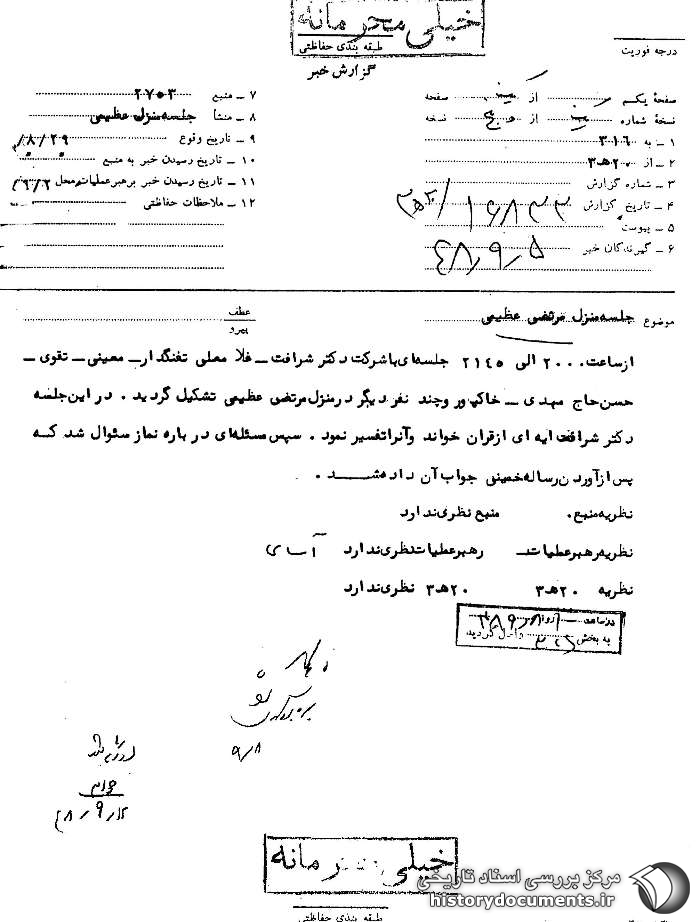 خیلی محرمانه
طبقه بندی حفاظتی
گزارش خبر
درجه فوریت
صفحهٔ یکم از یک صفحه
نسخهٔ شماره از نسخه
۱ - به ۳۱۶
۲ - از ۲۰هـ۳
۳ - شماره گزارش
۴ - تاریخ گزارش ۱۶۸۳۳/ ۲۰هـ۳
۵ - پیوست
۶ - گیرندگان خبر ۴۸/۹/۵
۷ - منبع ۲۷۵۳
۸ - منشأ جلسه منزل عظیمی
۹ - تاریخ وقوع ۸/۲۹/
۱۰ - تاریخ رسیدن خبر به منبع
۱۱ - تاریخ رسیدن خبر برهبر عملیات محل
۱۲ - ملاحظات حفاظتی
موضوع جلسه منزل مرتضی عظیمی
عطف
پیرو
از ساعت ۲۰۰۰ الی ۲۱۴۵ جلسه‌ای با شرکت دکتر شرافت - غلامعلی تفنگدار - معینی - تقوی -
حسن حاج مهدی - خاکپور و چند نفر دیگر در منزل مرتضی عظیمی تشکیل گردید . در این جلسه
دکتر شرافت ایه ای از قران خواند و آنرا تفسیر نمود . سپس مسئله‌ای در باره نماز سئوال شد که
پس از آوردن رساله خمینی جواب آن داده شد .
نظریه منبع. منبع نظری ندارد
نظریه رهبر عملیات - رهبر عملیات نظری ندارد آسای
نظریه ۲۰هـ۳ ۲۰هـ۳ نظری ندارد
در ساعت روز
به بخش ۳۲۱ واصل گردید
۹/۸
۳۱۶
۴۸/۹/۱۲
خیلی محرمانه
طبقه بندی حفاظتی
مرکز بررسی اسناد تاریخی
historydocuments.ir